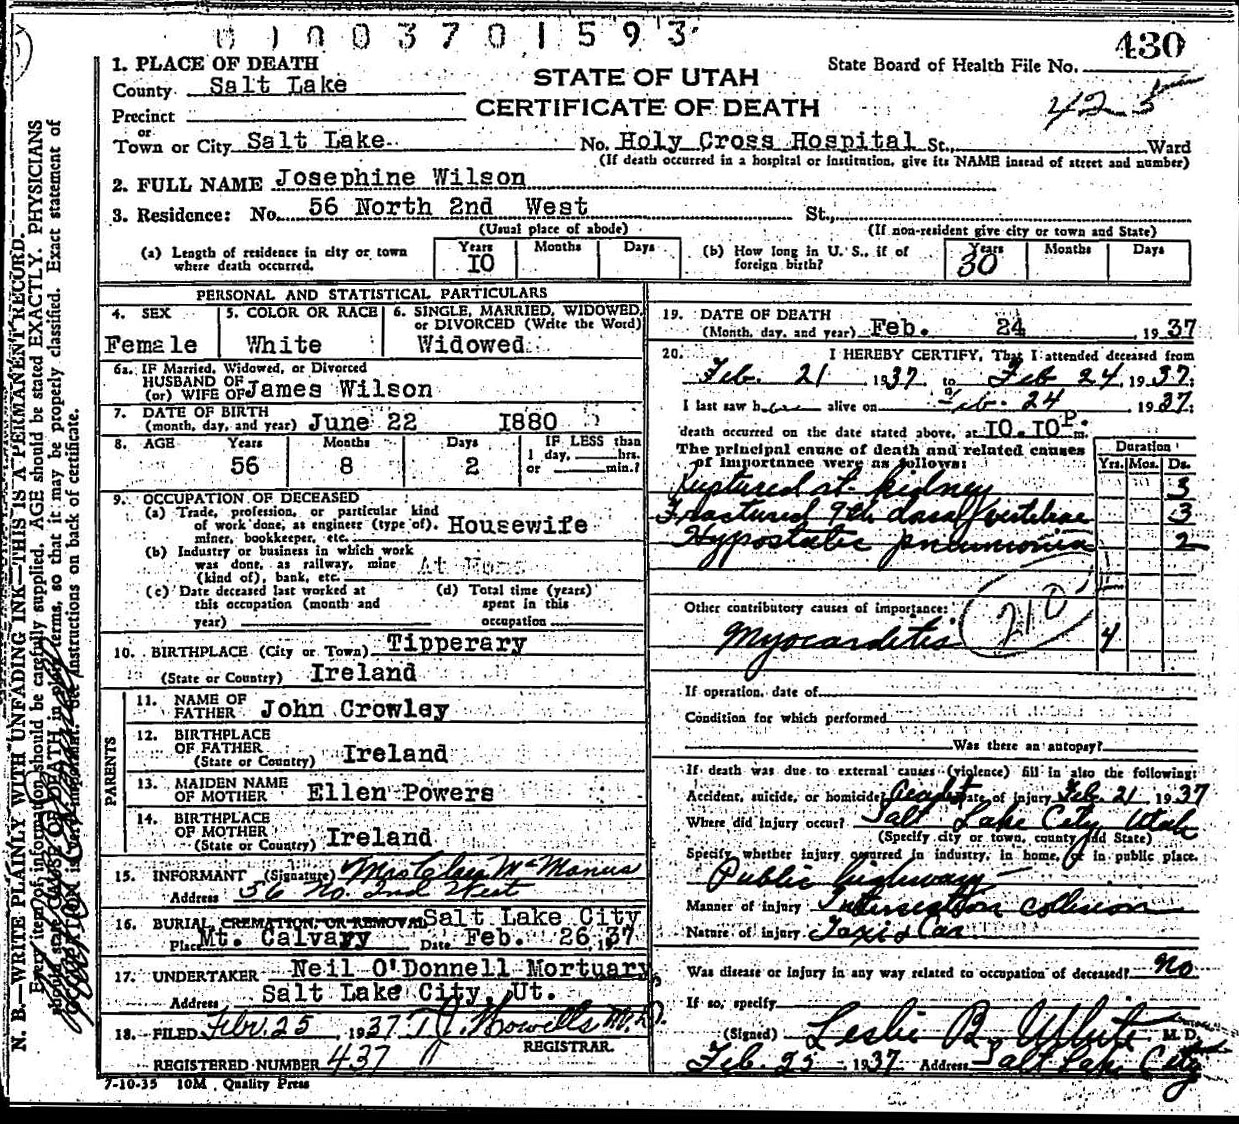 01003701593
430
1. PLACE OF DEATH
County Salt Lake
Precinct
or
Town or City Salt Lake
STATE OF UTAH
CERTIFICATE OF DEATH
State Board of Health File No.
425
No. Holy Cross Hospital St., Ward
(If death occurred in a hospital or institution, give its NAME instead of street and number)
2. FULL NAME Josephine Wilson
3. Residence: No. 56 North 2nd West St.,
(Usual place of abode) (If non-resident give city or town and State)
(a) Length of residence in city or town where death occurred. Years 10 Months Days
(b) How long in U. S., if of foreign birth? Years 30 Months Days
PERSONAL AND STATISTICAL PARTICULARS
4. SEX 5. COLOR OR RACE 6. SINGLE, MARRIED, WIDOWED, or DIVORCED (Write the Word)
Female White Widowed
6a. IF Married, Widowed, or Divorced
HUSBAND OF
(or) WIFE OF James Wilson
7. DATE OF BIRTH
(month, day, and year) June 22 1880
8. AGE Years Months Days IF LESS than
56 8 2 1 day, hrs. or min.?
9. OCCUPATION OF DECEASED
(a) Trade, profession, or particular kind
of work done, as engineer (type of), Housewife
miner, bookkeeper, etc.
(b) Industry or business in which work
was done, as railway, mine At Home
(kind of), bank, etc.
(c) Date deceased last worked at (d) Total time (years)
this occupation (month and spent in this
year) occupation
10. BIRTHPLACE (City or Town) Tipperary
(State or Country) Ireland
PARENTS
11. NAME OF
FATHER John Crowley
12. BIRTHPLACE
OF FATHER
(State or Country) Ireland
13. MAIDEN NAME
OF MOTHER Ellen Powers
14. BIRTHPLACE
OF MOTHER
(State or Country) Ireland
15. INFORMANT (Signature) Mrs McManus
Address 56 No. 2nd West
16. BURIAL CREMATION, OR REMOVAL Salt Lake City
Place Mt. Calvary Date Feb. 26, 1937
17. UNDERTAKER Neil O'Donnell Mortuary
Address Salt Lake City, Ut.
18. FILED Feb. 25, 1937 Howells M.D.
REGISTRAR.
REGISTERED NUMBER 437
7-10-35 10M Quality Press
19. DATE OF DEATH
(Month, day, and year) Feb. 24 1937
20. I HEREBY CERTIFY, That I attended deceased from
Feb. 21 1937, to Feb 24 1937;
I last saw her alive on Feb. 24 1937;
death occurred on the date stated above, at 10.10 P m.
The principal cause of death and related causes
of importance were as follows:
Duration
Yrs. Mos. Ds.
Ruptured rt. kidney 3
Fractured 9th dorsal vertebrae 3
Hypostatic pneumonia 2
Other contributory causes of importance: 210
Myocarditis 4
If operation, date of
Condition for which performed
Was there an autopsy?
If death was due to external causes (violence) fill in also the following:
Accident, suicide, or homicide? Date of injury Feb. 21 1937
Where did injury occur? Salt Lake City Utah
(Specify city or town, county and State)
Specify whether injury occurred in industry, in home, or in public place.
Public highway
Manner of injury Intersection collision
Nature of injury Taxi & Car
Was disease or injury in any way related to occupation of deceased? No
If so, specify
(Signed) Leslie B. White M. D.
Feb. 25 1937 Address Salt Lake City
N. B.—WRITE PLAINLY WITH UNFADING INK—THIS IS A PERMANENT RECORD.
Every item of information should be carefully supplied. AGE should be stated EXACTLY. PHYSICIANS
should state CAUSE OF DEATH in plain terms, so that it may be properly classified. Exact statement of
OCCUPATION is very important. See instructions on back of certificate.